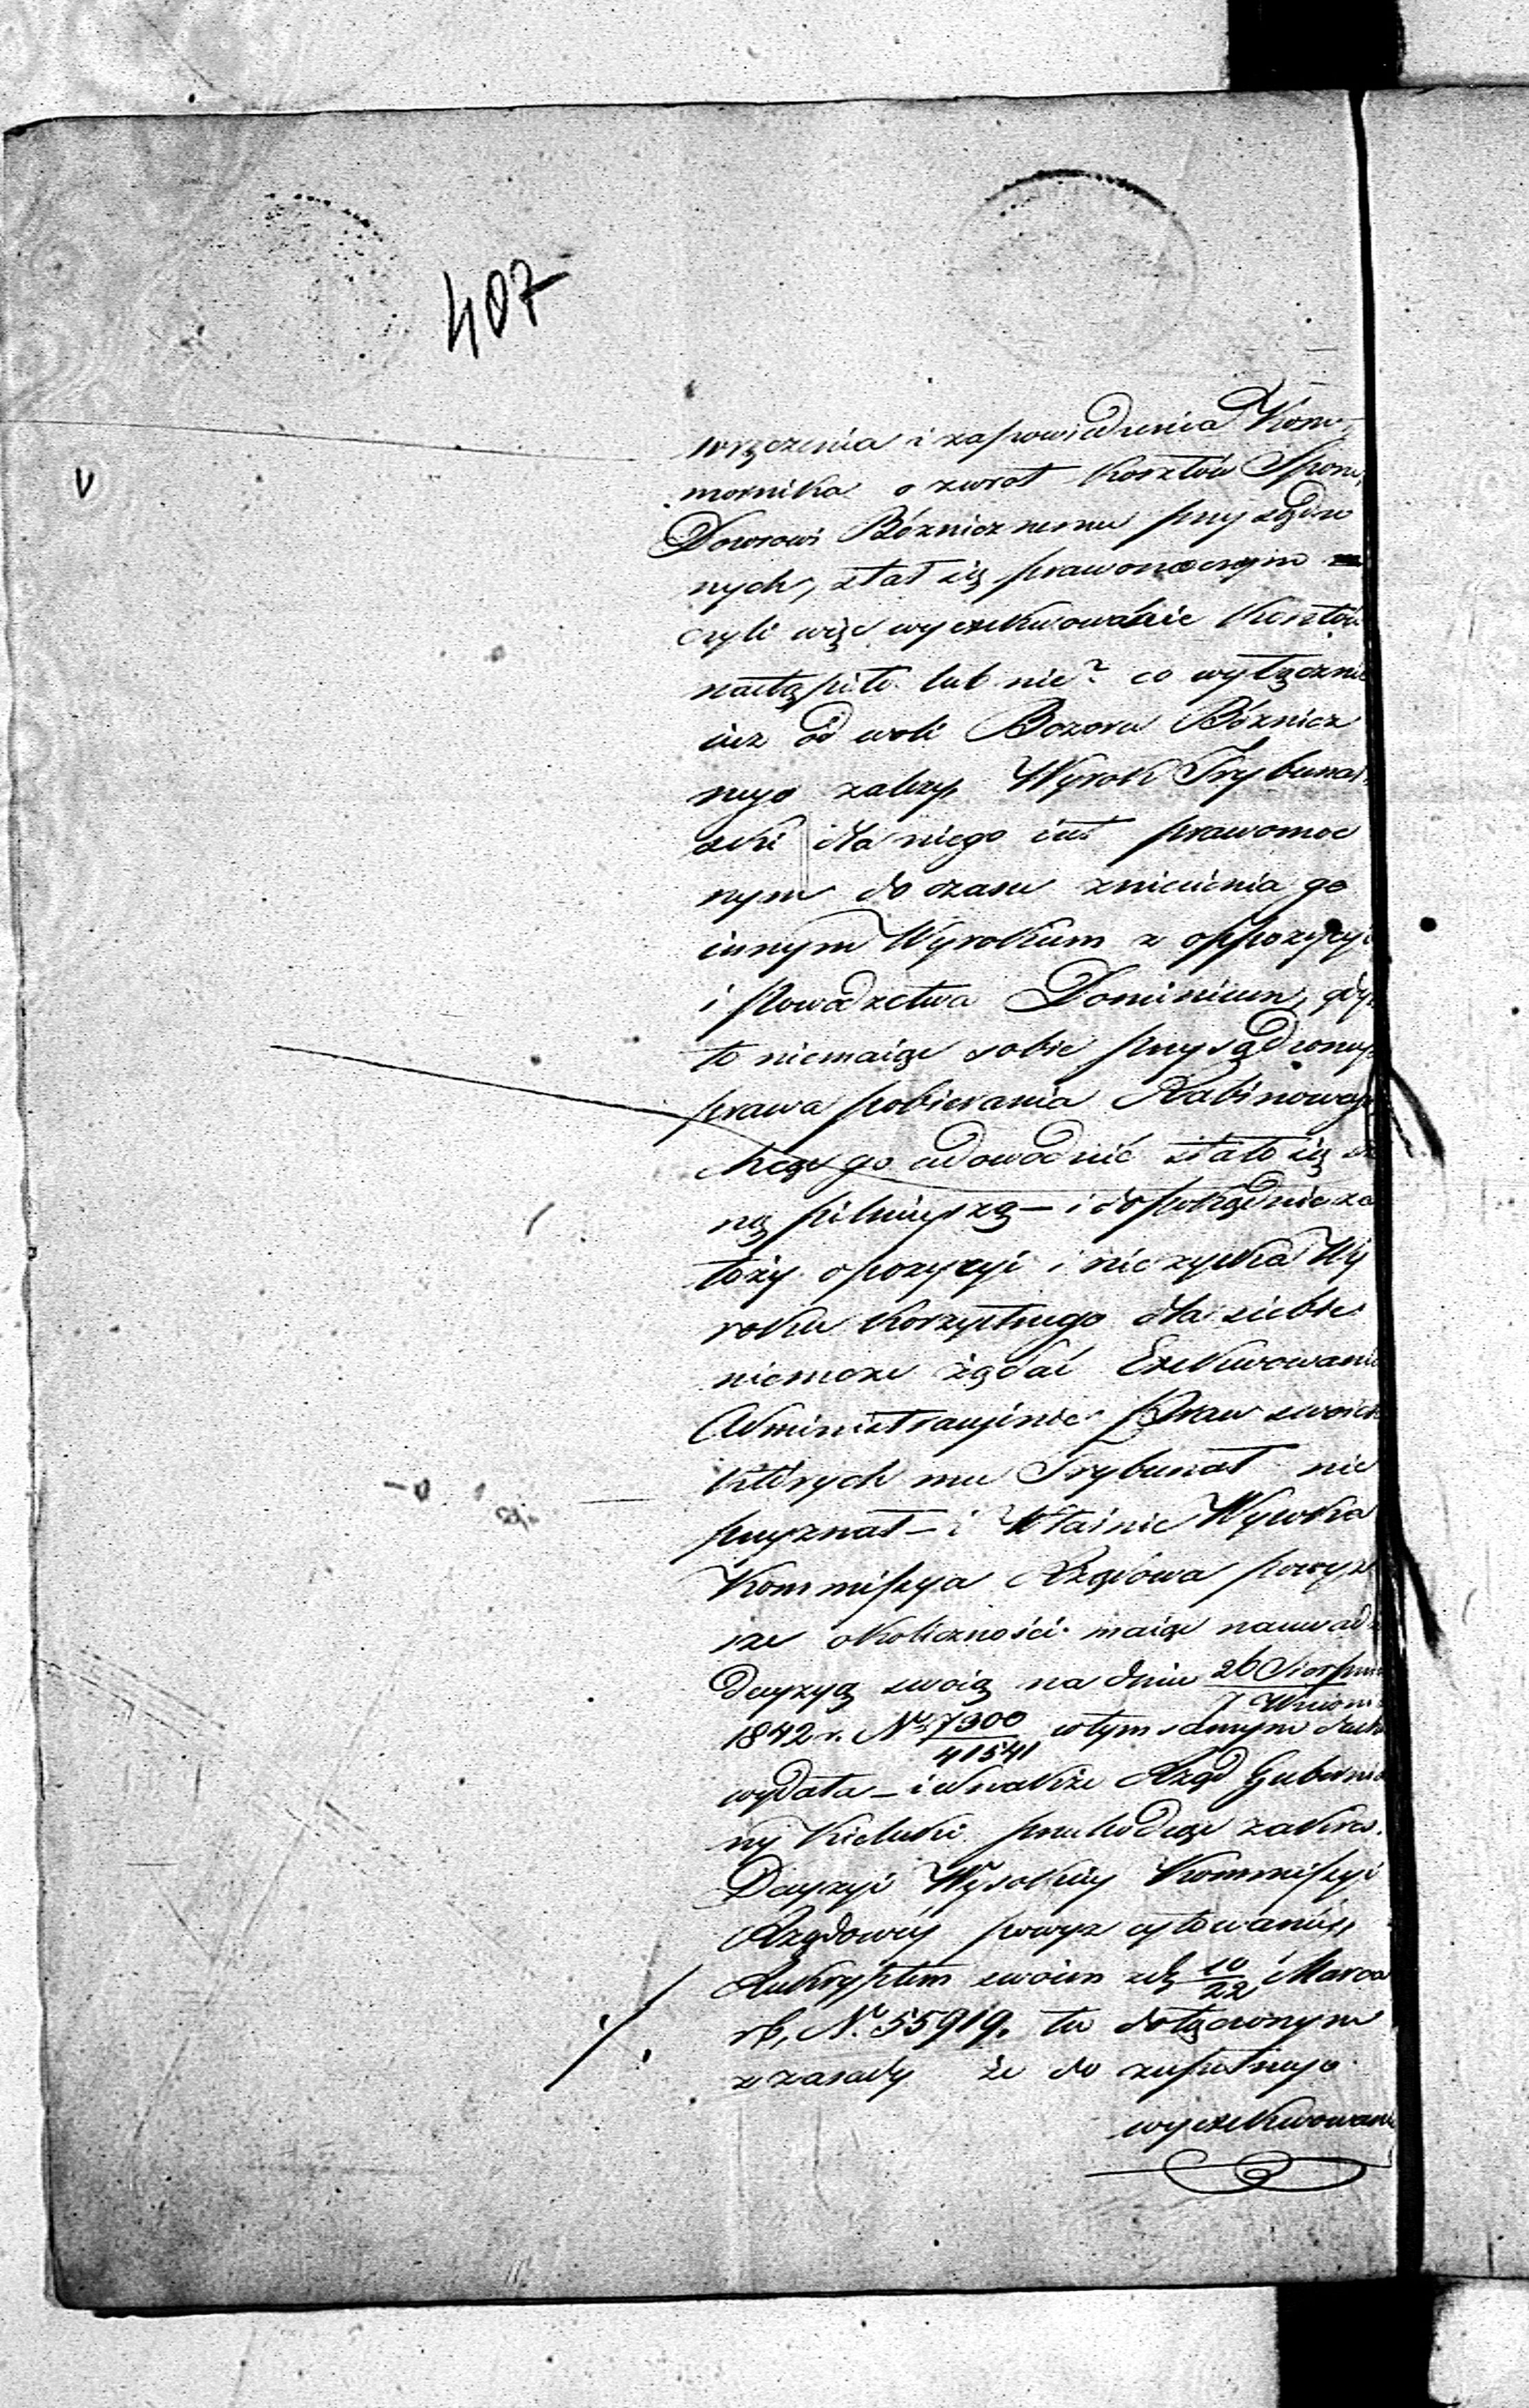 407
wręczenia i zapowiedzenia Kom,
mornika o zwrot kosztów Sporu,
Dozorowi Bóżnicznemu przysądzo
nych, stał się prawomocnym
czyli więc wyexekwowanie kosztów
nastąpiło lub nie? co wyłącznie
iuż od woli Dozoru Bóżnicz
nego zależy Wyrok Trybunal
ski dla niego iest prawomoc
nym do czasu zniesienia go
innym Wyrokiem z oppozycyi
i Powodztwa Dominium, gdyż
to niemaiąc sobie przysądzonego
prawa pobierania Rabinowego
chcąc go udowodnić stało się
ną pilnieyszą – i dopokąd nie za
łoży opozycyi i nie zyska Wy
roku korzystnego dla siebie
niemoże żądać Exekwowania
Administracyinie Praw swoich
których mu Trybunał nie
przyznał – i właśnie Wysoka
Kommissya Rządowa powyż
sze okoliczności maiąc na uwadze
decyzyą swoią na dniu 26 Sierpnia
7 Wrześni
1842 r. Nr 7300/41541 w tym samym duchu
wydała – i wszakże Rząd Gubernial
ny Kielecki przechodząc zakres
Decyzyi Wysokiey Kommissyi
Rządowey powyż cytowaney,
Reskryptem swoim z d. 10/22 Marca
rb, Nr. 55919. tu dołączonym
z zasady że do zupełnego
wyexekwowani